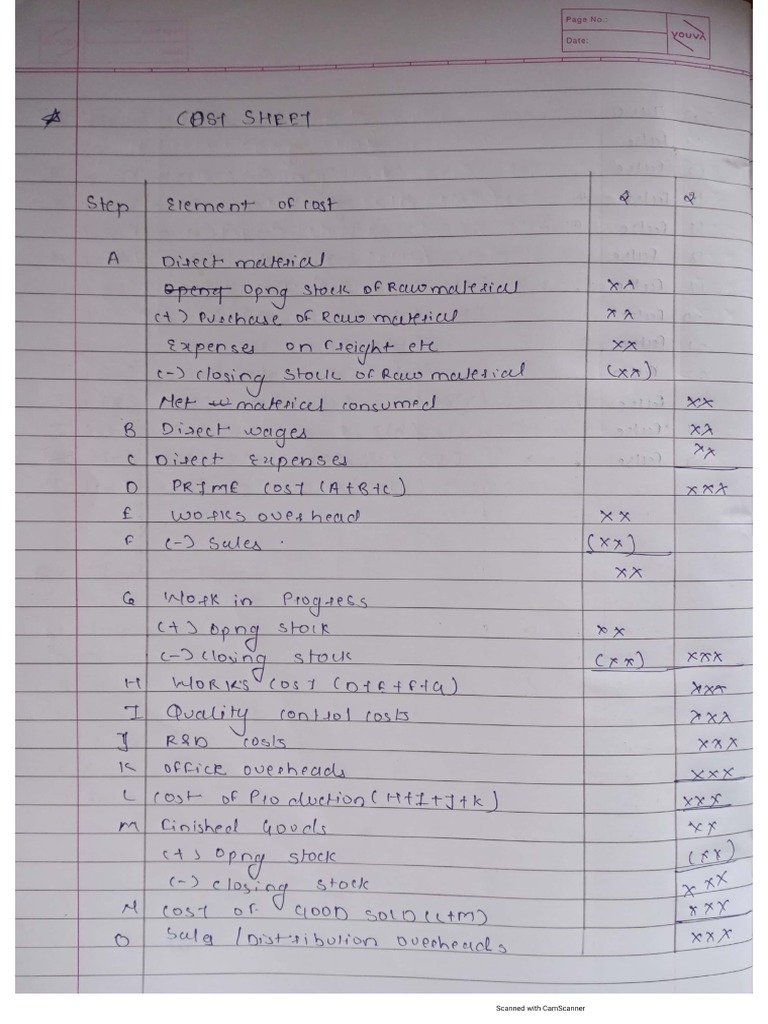 Page No.:
Date:
YOUVA
COST SHEET
Step Element of cost ₹ ₹
A Direct material
Openg Opng stock of Raw material xx
(+) Purchase of Raw material xx
Expenses on freight etc xx
(-) closing stock of Raw material (xx)
Net material consumed xx
B Direct wages xx
C Direct Expenses xx
D PRIME COST (A+B+C) xxx
E Works overhead xx
F (-) Sales. (xx)
xx
G Work in Progress
(+) Opng stock xx
(-) closing stock (xx) xxx
H WORKS COST (D+E+F+G) xxx
I Quality control costs xxx
J R&D costs xxx
K office overheads xxx
L cost of Production (H+I+J+K) xxx
M Finished Goods xx
(+) Opng stock (xx)
(-) closing stock xxx
N COST OF GOOD SOLD (L+M) xxx
O Sale /Distribution overheads xxx
Scanned with CamScanner